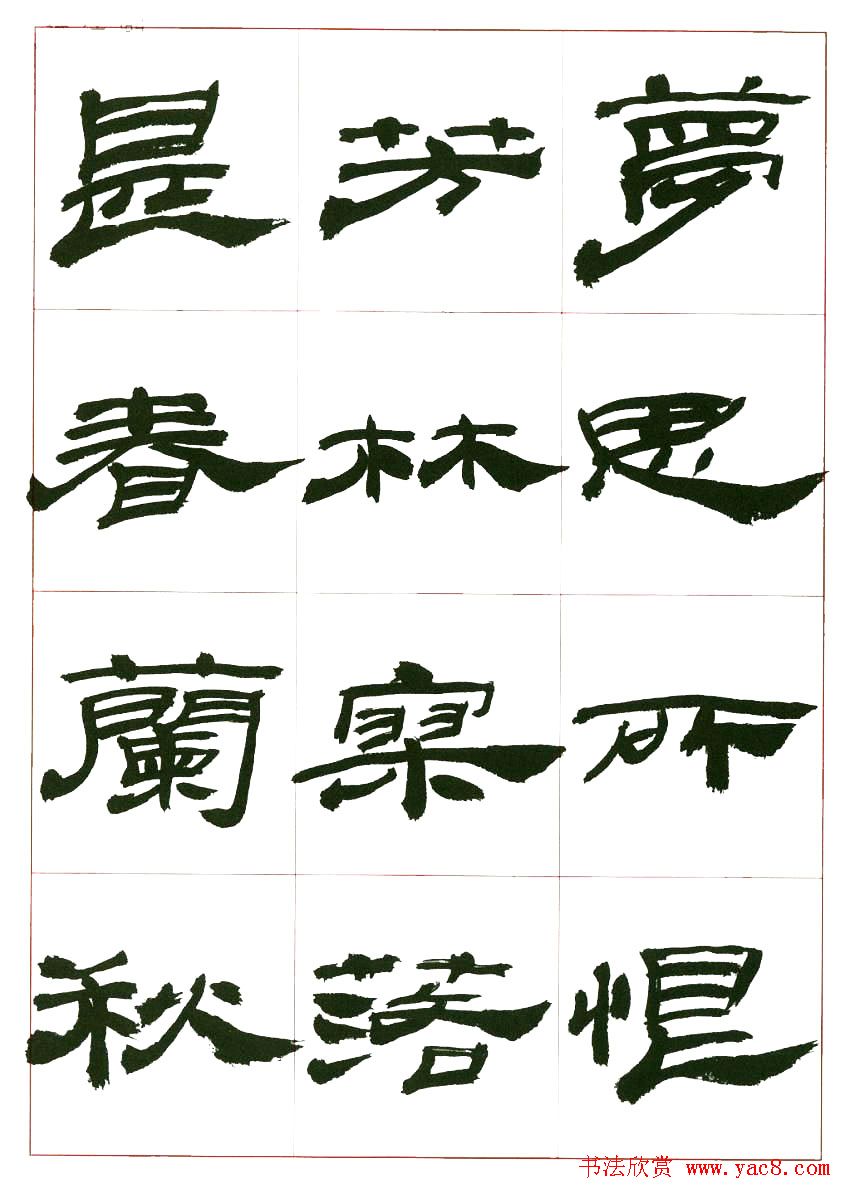 夢思所恨
芳林寥落
甚春蘭秋
书法欣赏 www.yac8.com